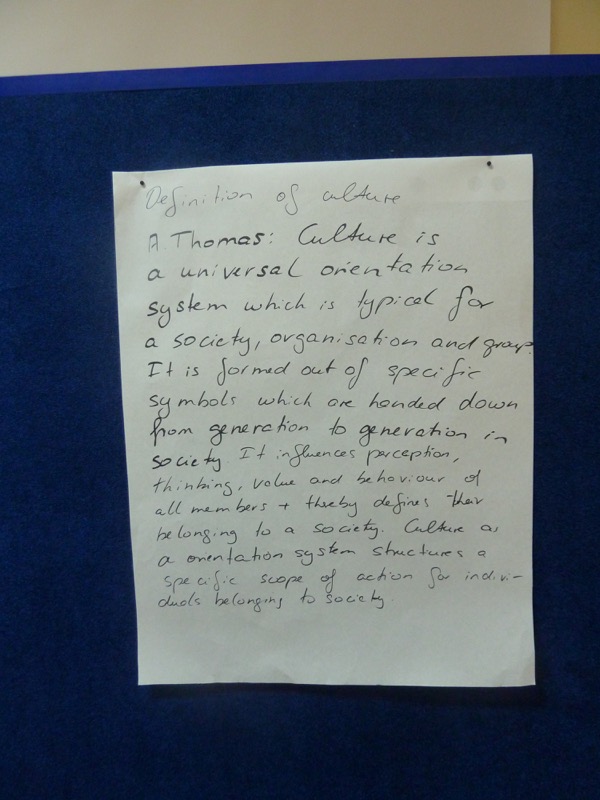 Definition of culture
A. Thomas: Culture is
a universal orientation
system which is typical for
a society, organisation and group.
It is formed out of specific
symbols which are handed down
from generation to generation in
society. It influences perception,
thinking, value and behaviour of
all members + thereby defines their
belonging to a society. Culture as
a orientation system structures a
specific scope of action for indivi-
duals belonging to society.